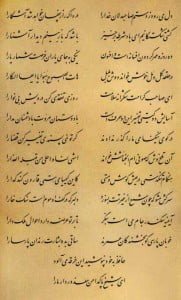 دل می رود ز دستم صاحبدلان خدا را دردا که راز پنهان خواهد شد آشکارا
کشتی شکستگانیم ای باد شرطه برخیز باشد که بازبینیم دیدار آشنا را
ده روزه مهر گردون افسانه است و افسون نیکی بجای یاران فرصت شمار یارا
در حلقه گل و مل خوش خواند دوش بلبل هات الصبوح هبوا یا ایها السکارا
ای صاحب کرامت شکرانه سلامت روزی تفقدی کن درویش بی نوا را
آسایش دو گیتی تفسیر این دو حرفست با دوستان مروت با دشمنان مدارا
در کوی نیکنامی ما را گذر ندادند گر تو نمی پسندی تغییر کن قضا را
آن تلخ وش که صوفی ام الخبائثش خواند اشهی لنا و احلی من قبلة العذارا
هنگام تنگدستی در عیش کوش و مستی کاین کیمیای هستی قارون کند گدا را
سرکش مشو که چون شمع از غیرتت بسوزد دلبر که در کف او موم است سنگ خارا
آیینه سکندر جام می است بنگر تا بر تو عرضه دارد احوال ملک دارا
خوبان پارسی گو بخشندگان عمرند ساقی بده بشارت رندان پارسا را
حافظ به خود نپوشید این خرقه می آلود
ای شیخ پاکدامن معذور دار ما را